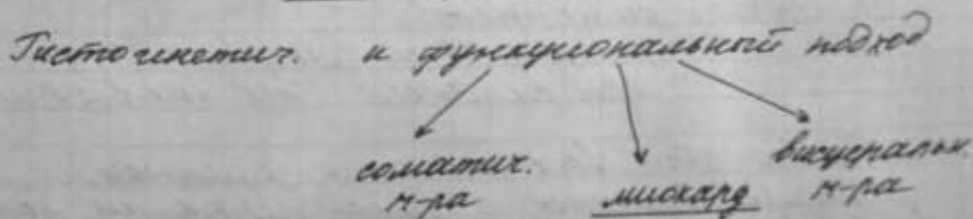 Гистогенетич. и функциональный подход
соматич. миокард висцеральн.
м-ра м-ра